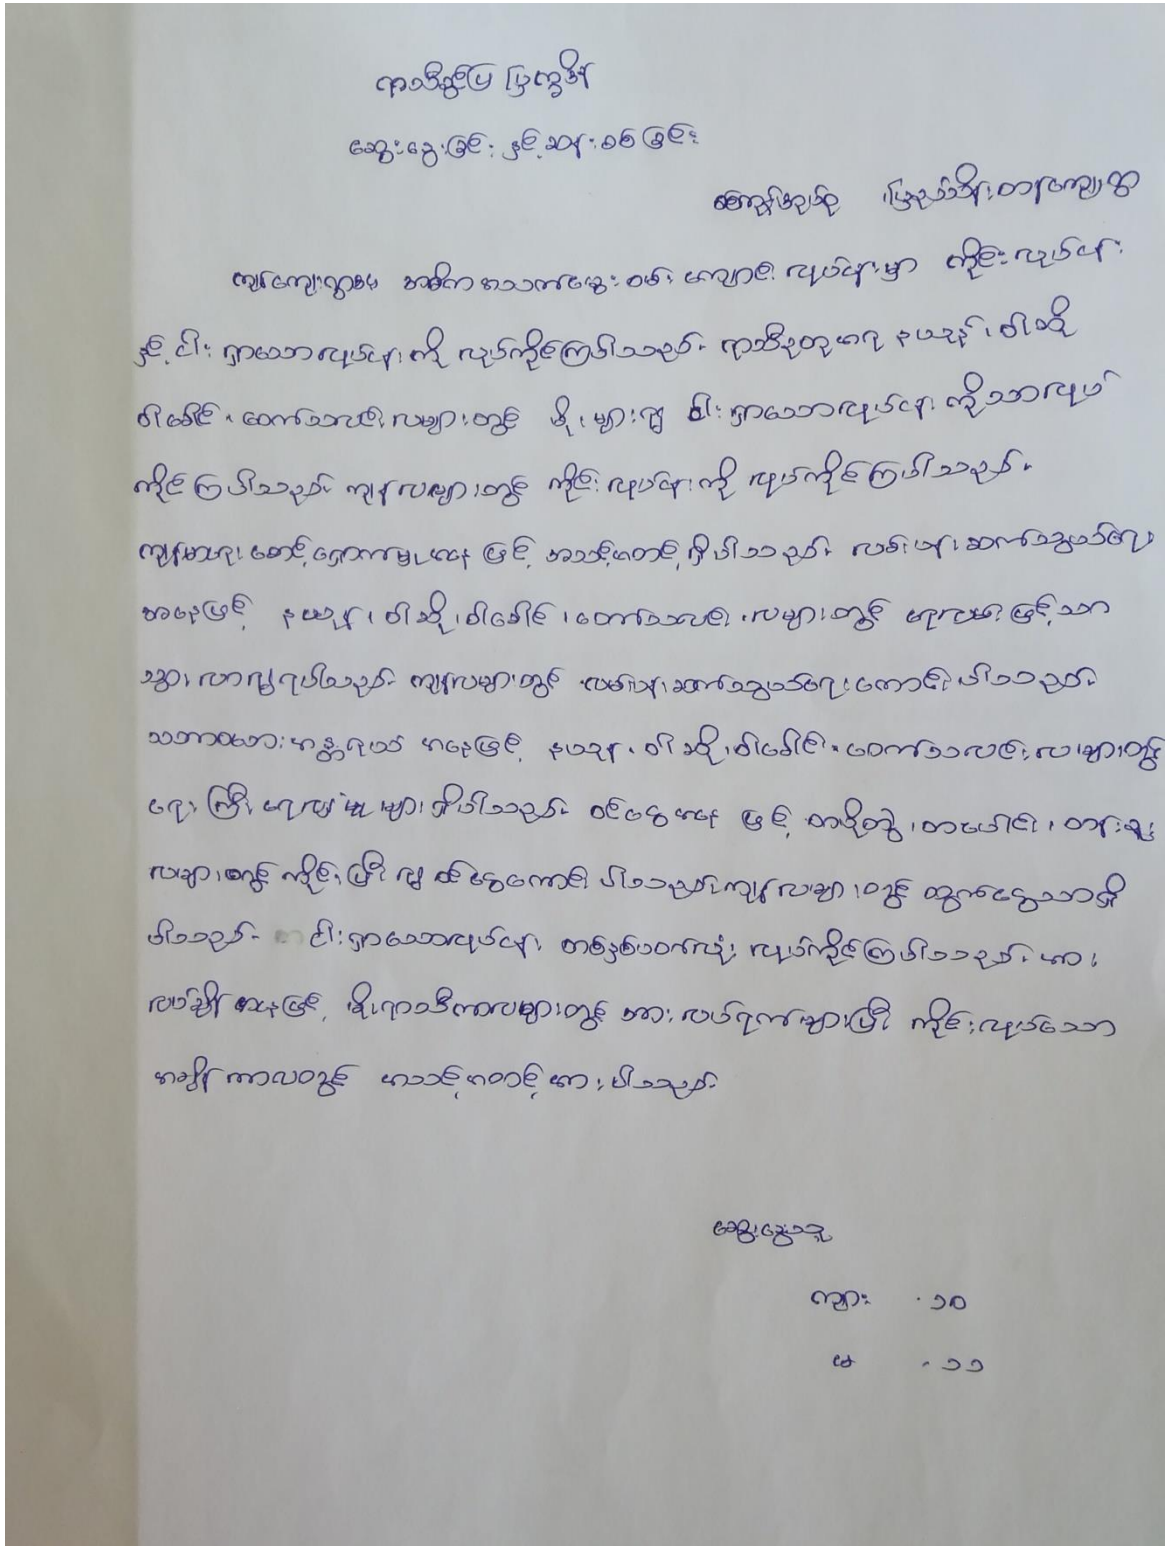 ရာသီခွင်ပြ ပြက္ခဒိန်
ဆွေးနွေးခြင်း နှင့် ဆန်းစစ်ခြင်း
ကျေးရွာ
ကျွန်ကျေးရွာ၏ အဓိက အသက်မွေးဝမ်းကျောင်း လုပ်ငန်းမှာ ကိုင်းလုပ်ငန်း
နှင့် ငါးရှာသောလုပ်ငန်းကို လုပ်ကိုင်ကြပါသည်။ ရာသီဥတုအရ နယုန်၊ ဝါဆို
ဝါခေါင်၊ တော်သလင်းလများတွင် မိုးများ၍ ငါးရှာသောလုပ်ငန်းကိုသာလုပ်
ကိုင်ကြပါသည်။ ကျန်လများတွင် ကိုင်းလုပ်ငန်းကို လုပ်ကိုင်ကြပါသည်။
ကျန်းမာရေးစောင့်ရှောက်မှုအနေဖြင့် အသင့်အတင့်ရှိပါသည်။ လမ်းပန်းဆက်သွယ်ရေး
အနေဖြင့် နယုန်၊ ဝါဆို၊ ဝါခေါင်၊ တော်သလင်းလများတွင် ရေလမ်းဖြင့်သာ
သွားလာ၍ရပါသည်။ ကျန်လများတွင် လမ်းပန်းဆက်သွယ်ရေးကောင်းပါသည်။
သဘာဝဘေးအန္တရာယ် အနေဖြင့် နယုန်၊ ဝါဆို၊ ဝါခေါင်၊ တော်သလင်းလများတွင်
ရေကြီးရေလျှံမှုများရှိပါသည်။ ဝင်ငွေအနေဖြင့် တပို့တွဲ၊ တပေါင်း၊ တန်ခူး
လများတွင် ကိုင်းပြီး၍ ဝင်ငွေကောင်းပါသည်။ ကျန်လများတွင် ထွက်ငွေသာရှိ
ပါသည်။ ငါးရှာသောလုပ်ငန်း တစ်နှစ်ပတ်လုံး လုပ်ကိုင်ကြပါသည်။ အား
လပ်ချိန်အနေဖြင့် မိုးရာသီကာလများတွင် အားလပ်ရက်များပြီး ကိုင်းလုပ်သော
အချိန်ကာလတွင် အသင့်အတင့်အားပါသည်။
ဆွေးနွေးသူ
ကျား - ၁၀
မ - ၁၁